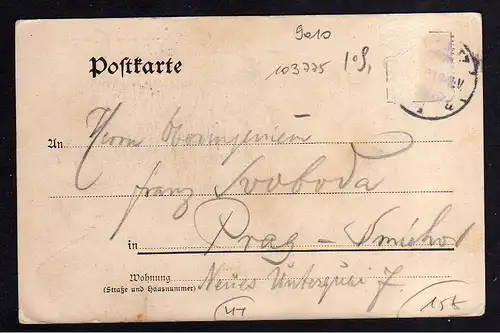 9010
Postkarte
103775
An Herrn Oberingenieur
Franz Svoboda
in Prag – Smichov
Wohnung
(Straße und Hausnummer) Neues Unterquai 7
15k